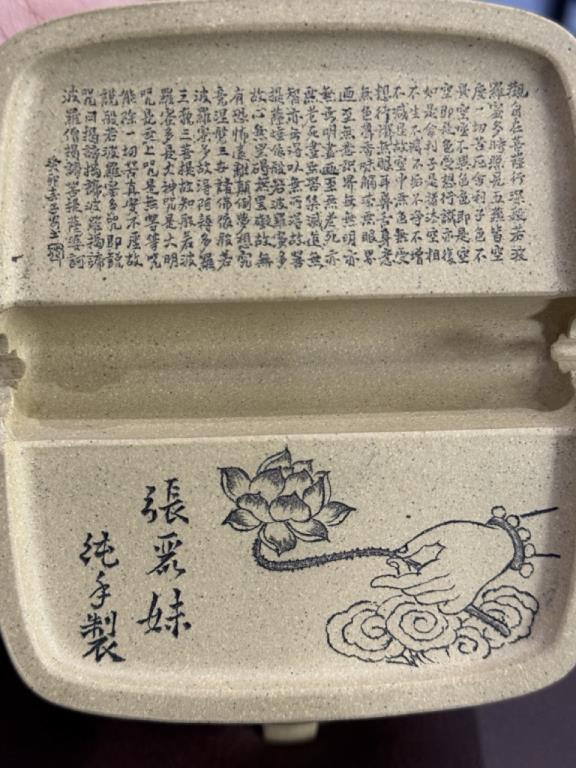 觀自在菩薩行深般若波
羅蜜多時照見五蘊皆空
度一切苦厄舍利子色不
異空空不異色色即是空
空即是色受想行識亦復
如是舍利子是諸法空相
不生不滅不垢不淨不增
不減是故空中無色無受
想行識無眼耳鼻舌身意
無色聲香味觸法無眼界
乃至無意識界無無明亦
無無明盡乃至無老死亦
無老死盡無苦集滅道無
智亦無得以無所得故菩
提薩埵依般若波羅蜜多
故心無罣礙無罣礙故無
有恐怖遠離顛倒夢想究
竟涅槃三世諸佛依般若
波羅蜜多故得阿耨多羅
三藐三菩提故知般若波
羅蜜多是大神咒是大明
咒是無上咒是無等等咒
能除一切苦真實不虛故
說般若波羅蜜多咒即說
咒曰揭諦揭諦波羅揭諦
波羅僧揭諦菩提薩婆訶
癸卯
張麗妹
純手製